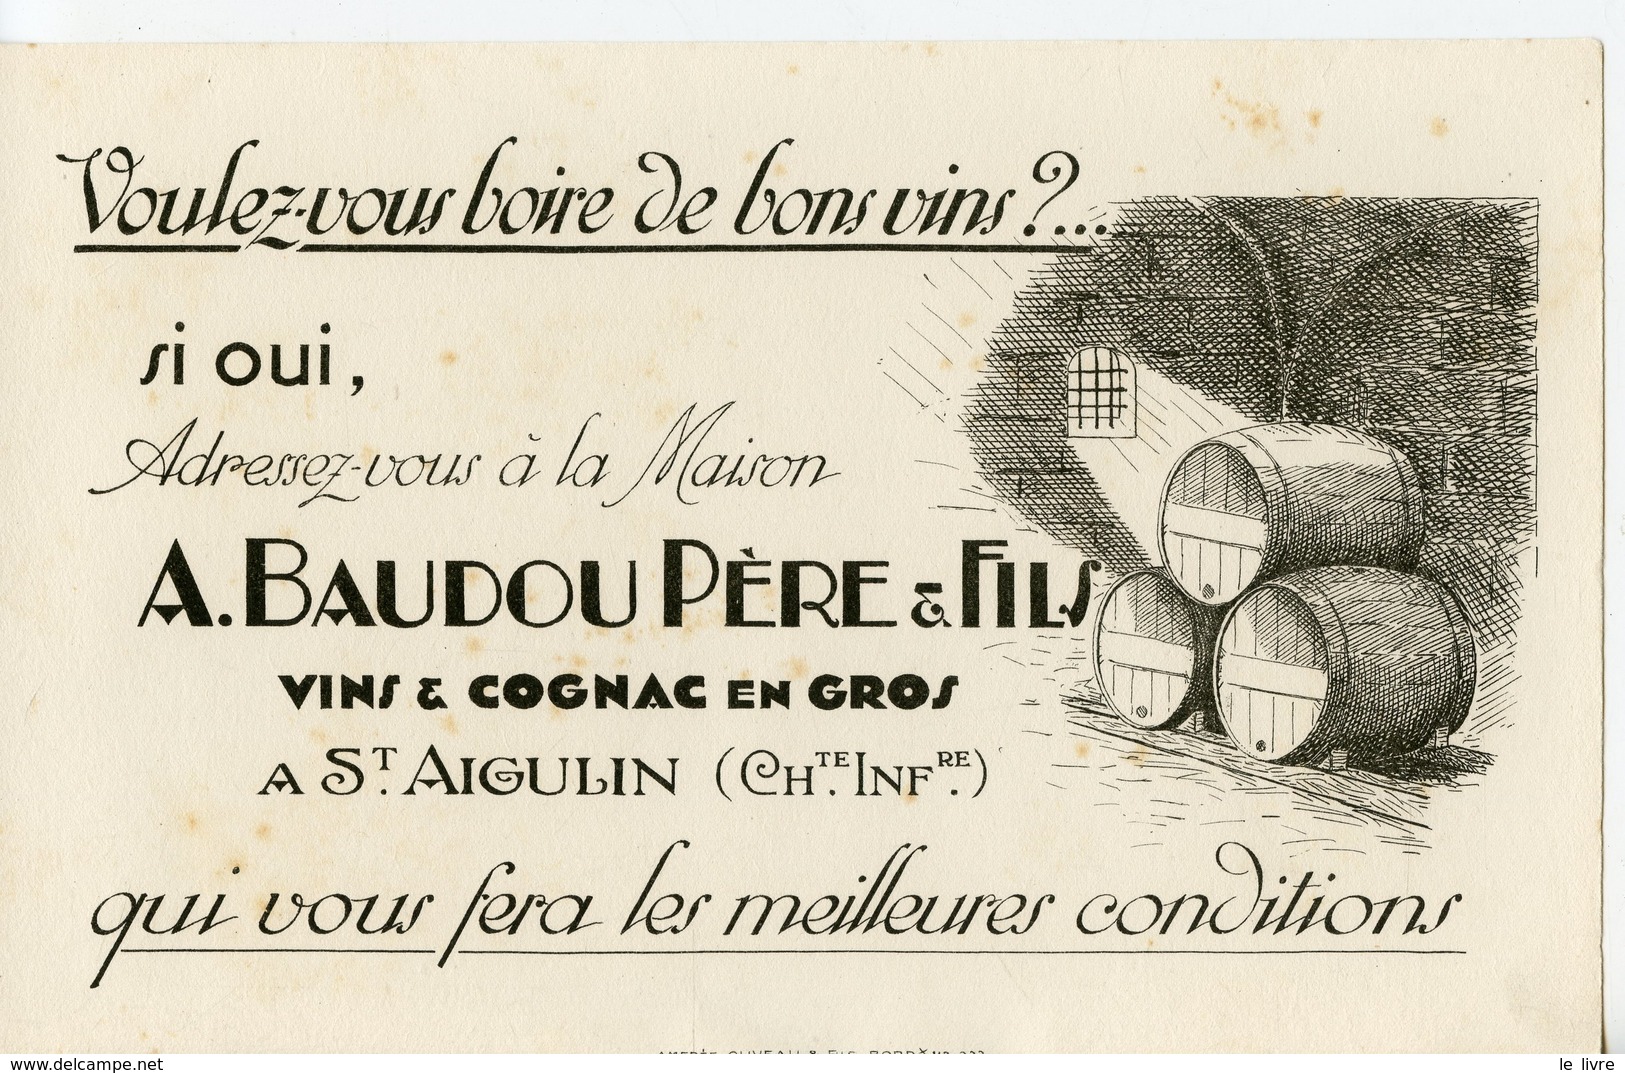 Voulez-vous boire de bons vins ?...
si oui,
Adressez-vous à la Maison
A. BAUDOU PÈRE & FILS
VINS & COGNAC EN GROS
A ST. AIGULIN (CHTE. INFRE.)
qui vous fera les meilleures conditions
www.delcampe.net
le_livre